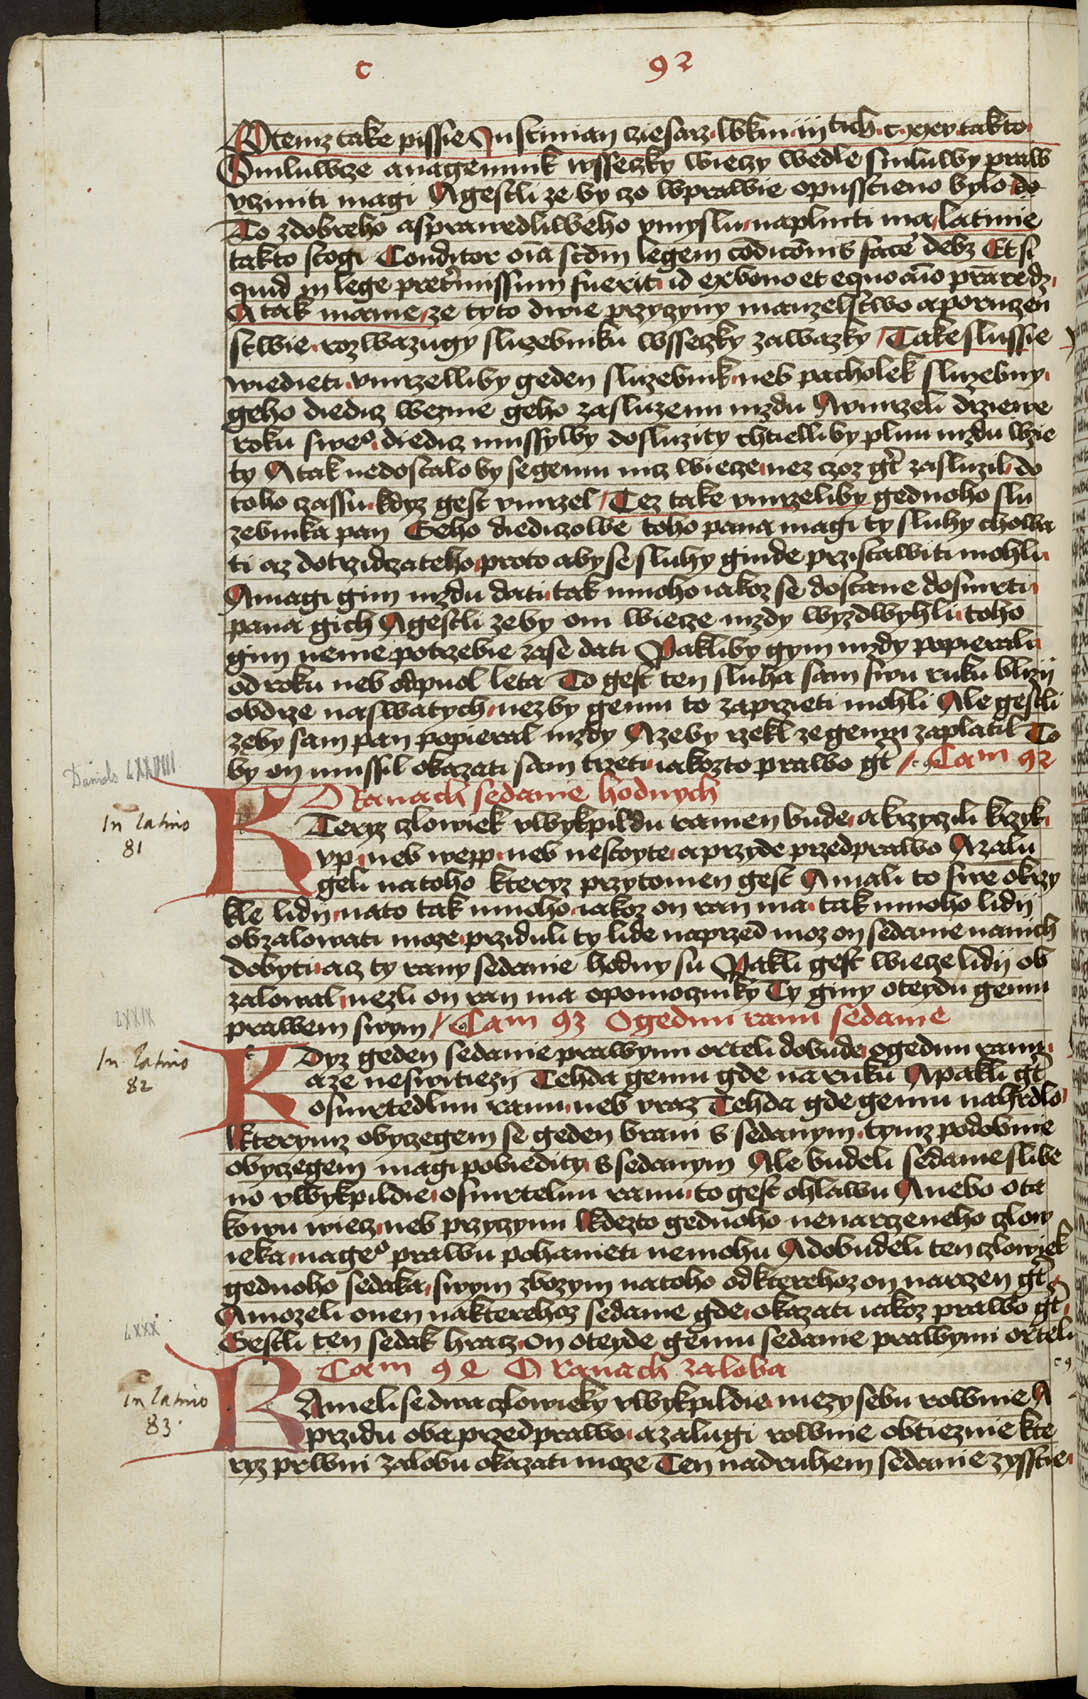 c 92
Otemz take pissie Iustinian cziesarz lvkni iij tich c xxxv takto
Smluwcze a nagemnik wsseczky wieczy wedle smluwy praw
vcziniti magi A gestli ze by czo wprawie opusstieno bylo do
To zdobreho asprawedliweho vmyslu naplniti ma latinie
takto stogi Conditor oia scdm legem codicois face debz Et si
quid in lege pretmissum fuerit id ex bono et equo
A tak mame ze tyto dwie przycziny manzelstwo a poruczen
stwie rozwazugy sluzebniku wsseczky zawazky Take slussie
wiedieti vmrzelliby geden sluzebnik neb pacholek sluzebny
geho diedicz wezme geho zasluzenu mzdu A vmrzeli drziewe
roku sweo diedicz mussylby dosluzity chtielliby plnu mzdu wzie
ty A tak nedostalo by se gemu nicz wiecze nez czoz gt zasluzil do
toho czassu kdyz gest vmrzel Tez take vmrzeliby gednoho slu
zebnika pan Geho diediczowe toho pana magi ty sluhy chowa
ti az do trzidczateho proto aby se sluhy ginde przistawiti mohli
A magi gim mzdu dati tak mnoho iakoz se dostane do smrti
pana gich A gestli zeby oni wiecze mzdy wyzdwyhli toho
gim neme potrzebie zase dati Pakliby gym mzdy popierali
od roku neb od puol leta To gest ten sluha sam swu ruku blizij
obdrze naswatych nezby gemu to zaprzieti mohli Ale gestli
zeby sam pan popieral mzdy A zeby rzekl ze gemu zaplatil To
by on mussil okazati sam trzeti iakozto prawo gt Cam 92
O Ranach sedanie hodnych
Danielo LXXVIIII
In latino
81
KTeryz czlowiek vwykpildu ranien bude a krzyczili krzyk
vp neb wepp neb nestoyte a przyde przed prawo A zalu
geli na toho kteryz przytomen gest A mali to swe okrzy
kle lidij na to tak mnoho iakoz on ran ma tak mnoho lidij
obzalowati moze prziduli ty lide naprzed moz on sedanie na nich
dobyti acz ty rany sedanie hodny su Pakli gest wiecze lidij ob
zalowal nezli on ran ma o pomoczniky Ty giny oteydu gemu
prawem swym Cam 93 O gednu ranu sedanie
LXXIX
In latino
82
KDyz geden sedanie prawymi orteli dobude o gednu ranu
a ze neswitiezij Tehda gemu gde na ruku A pakli gt
o smrtedlnu ranu neb vraz Tehda gde gemu na hrdlo
Kterymz obyczegem se geden brani s sedanym tymz podobnie
obyczegem magi pobiedity s sedanym Ale budeli sedanie slibe
no vwykpildie o smrtelnu ranu to gest o hlawu Anebo o ta
kowu wiecz neb przyczynu Kdezto gednoho nenarczeneho czlow
ieka na geo prawu pohanieti nemohu A dobudeli ten czlowiek
gednoho sedaka swym zbozym na toho od kterehoz on narczen gt
A mozeli onen na kterehoz sedanie gde okazati iakoz prawo gt
Gestli ten sedak hracz on oteyde gemu sedanie prawymi orteli
LXXX
Cam 94 O Ranach zaloba
In latino
83
RAmelise dwa czlowieky vwykpildie mezy sebu rownie A
przidu oba przed prawo a zalugi rownie obtieznie kte
ryz prwni zalobu okazati moze Ten na druhem sedanie zysstie